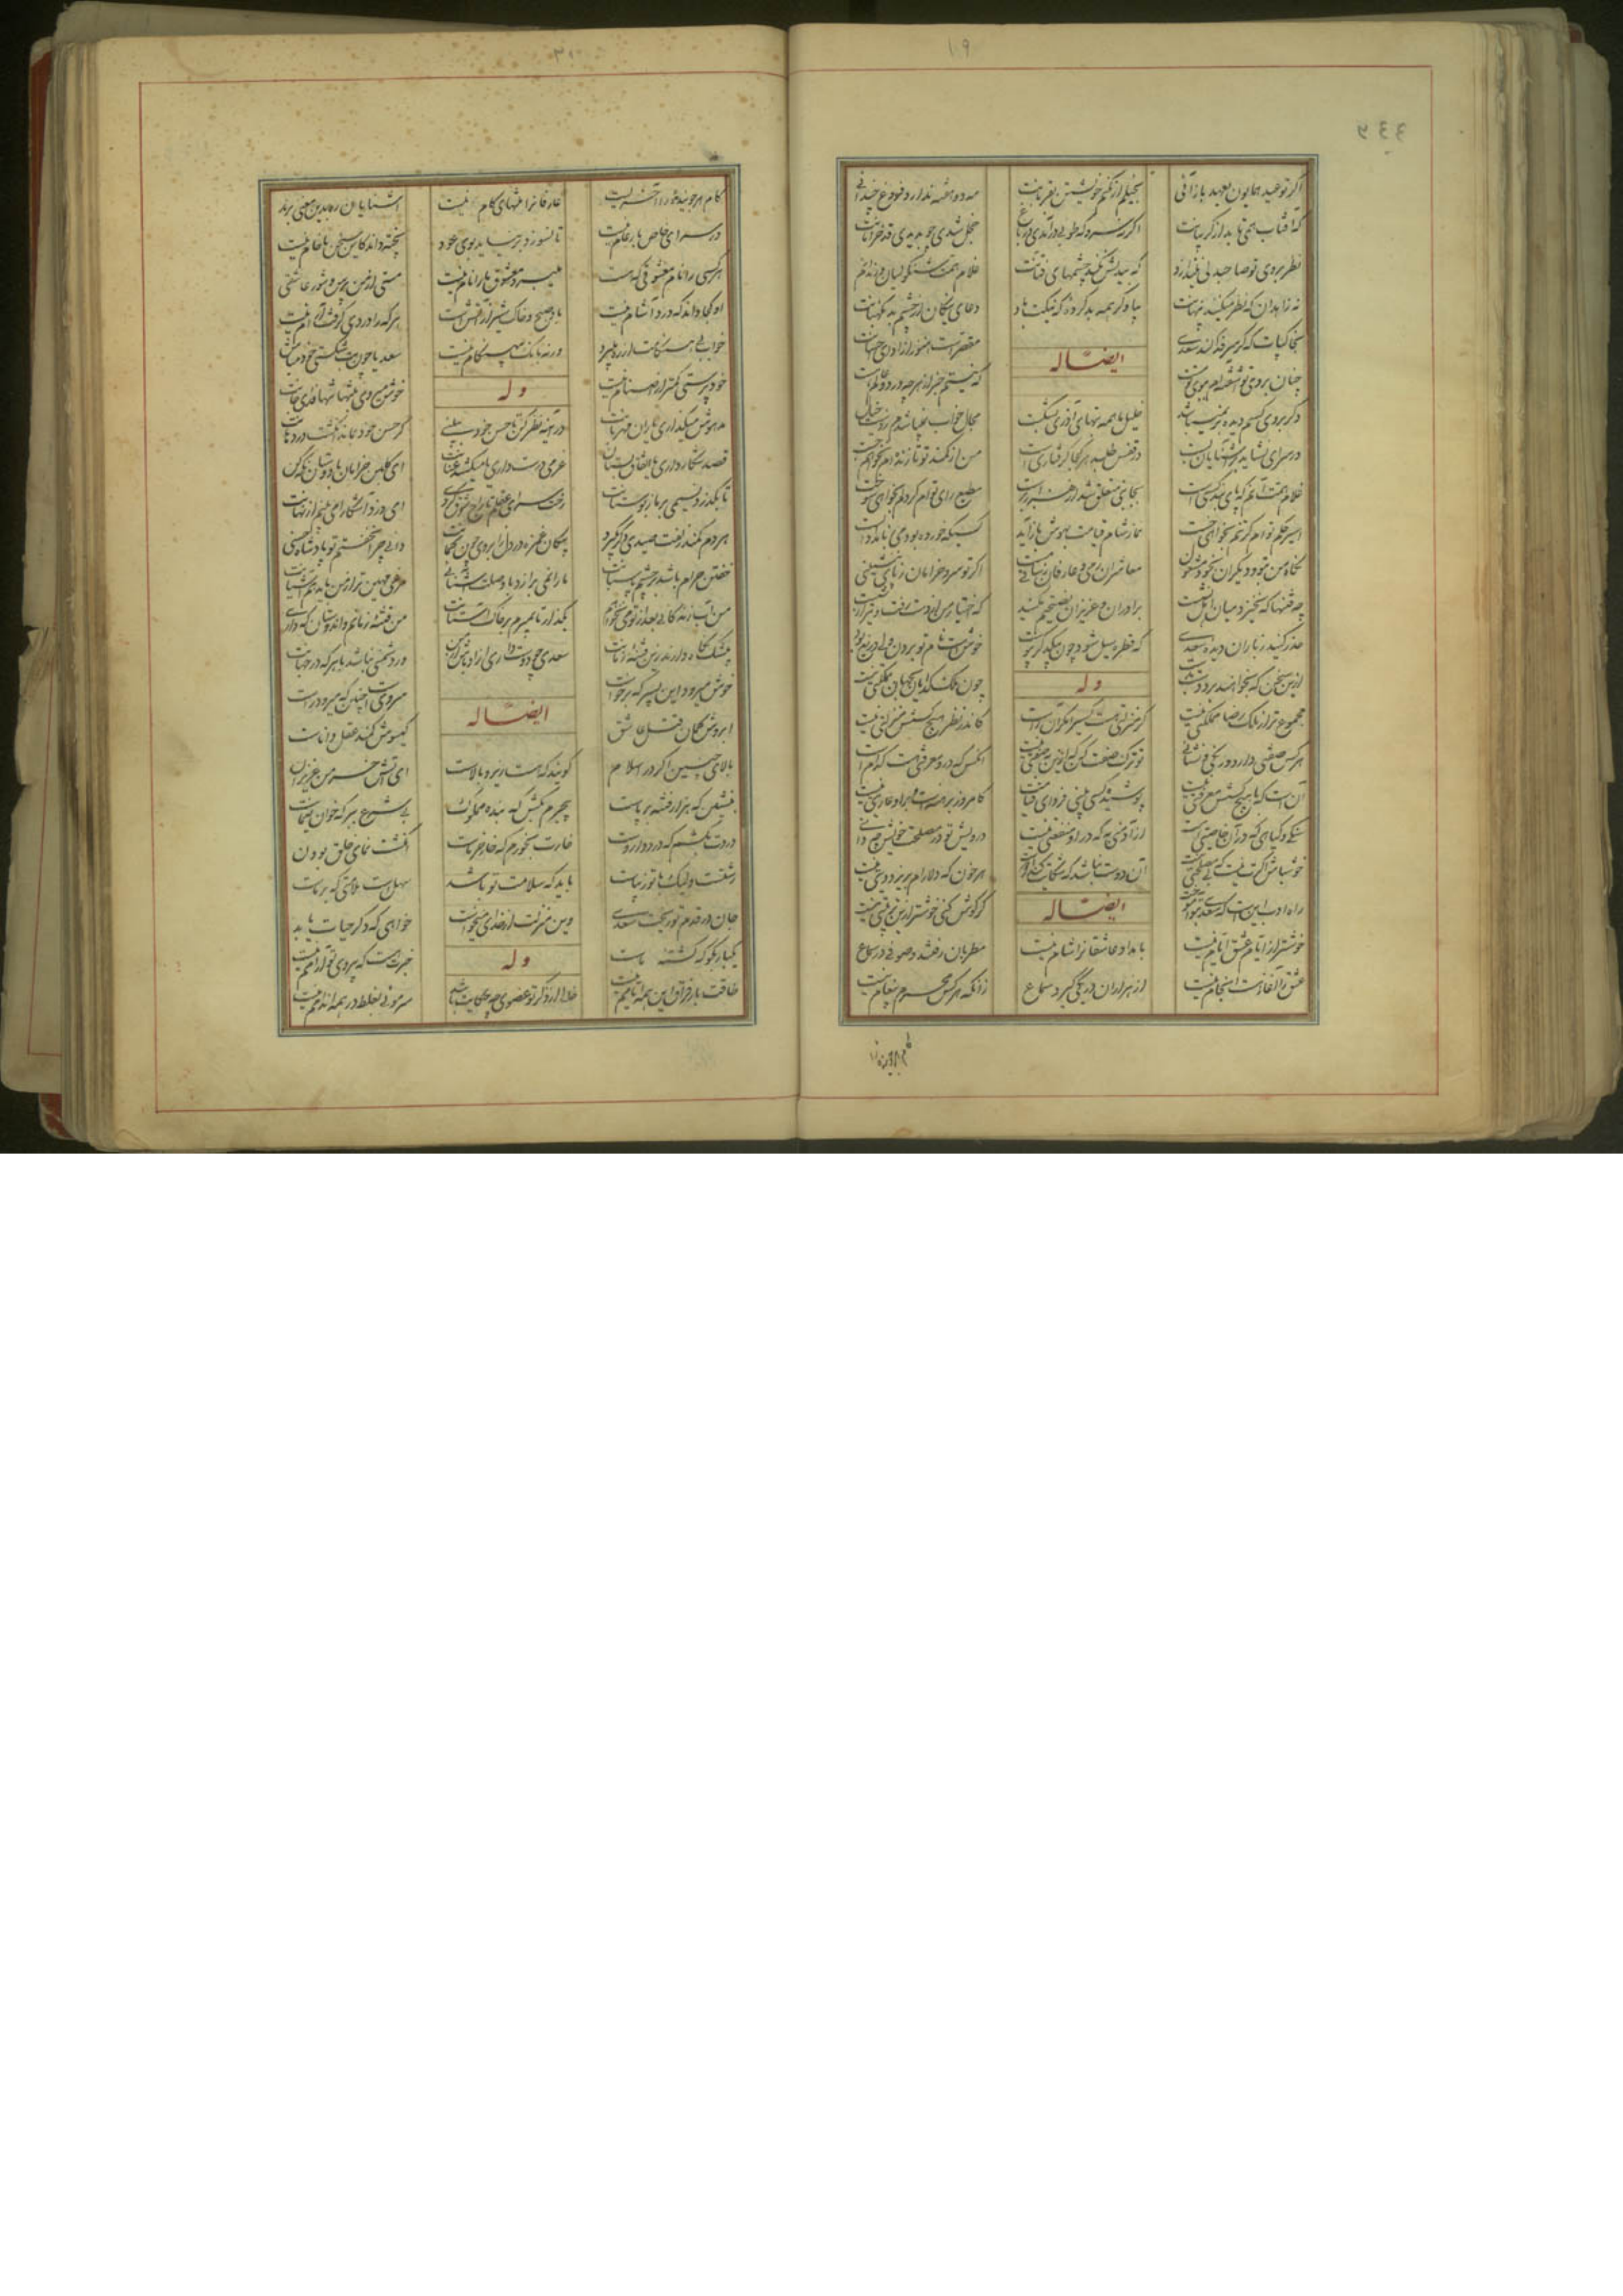 ۱۰۹
اگر تو عید همایون بعهد بازآئی
بخیلم ار نکنم خویشتن بقربانت
مه دو هفته ندارد فروغ چندانی
که آفتاب همی تابد از گریبانت
اگر نه سرو که طوبی درآمدی در باغ
خجل شدی چو بدیدی قد خرامانت
نظر بروی تو صاحبدلی نیندازد
که بیدلش نکند چشمهای فتانت
غلام همت شنگولیان و رندانم
نه زاهدان که نظر میکنند پنهانت
بیا و گر همه بد کردهٔ که نیکت باد
دعای نیکان از چشم بد نگهبانت
بخاکپات که گر سر فدا کند سعدی
مقصر است هنوز از ادای احسانت
ایضاً له
چنان بروی تو آشفته‌ام ببوی تو مست
که نیستم خبر از هرچه در دو عالم هست
دگر بروی کسم دیده بر نمیباشد
خلیل ما همه بتهای آزری بشکست
مجال خواب نمیباشدم ز دست خیال
در سرای نشاید بر آشنایان بست
در قفس طلبد هر کجا گرفتاری است
من از کمند تو تا زنده‌ام نخواهم جست
غلام همت آنم که پای بند یکی است
بجانبی متعلق شد از هزار برست
مطیع رای توام گر دلم بخواهی سوخت
اسیر حکم توام گر تنم بخواهی خست
نماز شام قیامت بهوش بازآید
کسیکه خورده بود می ز بامداد الست
نگاه من بتو و دیگران بخود مشغول
معاشران ز می و عارفان ز ساقی مست
اگر تو سرو خرامان ز پای ننشینی
چه فتنها که بخیزد میان اهل نشست
برادران و عزیزان نصیحتم مکنید
که اختیار من از دست رفت و تیر از شست
حذر کنید ز باران دیده سعدی
که قطره سیل شود چون بیکدگر پیوست
خوشست نام تو بردن ولی دریغ بود
ازین سخن که بخواهند برد دست بدست
وله
چون ملک گدایان بجهان مملکتی نیست
مجموع‌تر از ملک رضا مملکتی نیست
گر منزلتی هست کسیرا مگر آنراست
کاندر نظر هیچکسش منزلتی نیست
هر کس صفتی دارد و رنگی و نشانی
تو ترک صفت کن که ازین به صفتی نیست
آنکس که درو معرفتی هست کدام است
آن است که با هیچکسش معرفتی نیست
پوشیده کسی بینی فردای قیامت
کامروز برهنه است و برو عاریتی نیست
سنگی و گیاهی که در آن خاصیتی است
از آدمئی به که درو منفعتی نیست
درویش تو در مصلحت خویش چه دانی
خوش باش اگرت نیست که بی مصلحتی نیست
آن دوست نباشد که شکایت کند از دوست
هر خون که دلارام بریزد دیتی نیست
راه ادب این است که سعدی بتو آموخت
گر گوش کنی خوشتر ازین تربیتی نیست
ایضاً له
خوشتر از ایام عشق ایام نیست
بامداد عاشقانرا شام نیست
مطربان رفتند و صوفی در سماع
عشق را آغاز هست انجام نیست
از هزاران در یکی گیرد سماع
زانکه هر کس محرم پیغام نیست
کام هر جوینده‌را آخریست
عارفانرا منتهای کام نیست
آشنایان ره بدین معنی برند
در سرای خاص بار عام نیست
تا نسوزد برنیاید بوی عود
پخته داند کاین سخن با خام نیست
هر کسی را نام معشوقی که هست
میبرد معشوق ما را نام نیست
مستی از من پرس و شور عاشقی
او کجا داند که درد آشام نیست
باد صبح و خاک شیراز آتش است
هر که را در وی گرفت آرام نیست
خواب بی هنگامت از ره میبرد
ورنه بانگ صبح بی هنگام نیست
سعدیا چون بت شکستی خود مباش
خود پرستی کمتر از اصنام نیست
وله
خوش میروی بتنها تنها فدای جانت
مدهوش میگذاری یاران مهربانت
در آینه نظر کن تا حسن خود ببینی
گر حسن خود بماند انگشت در دهانت
قصد شکار داری یا اتفاق بستان
عزمی درست داری یا میکشد عنانت
ای گلبن خرامان با دوستان نگه کن
تا بگذرد نسیمی بر ما ز بوستانت
رخت سرای عقلم تاراج شوق کردی
ای دزد آشکارا می بینم از نهانت
هر دم کمند زلفت صیدی دگر گیرد
پیکان غمزه در دل ز ابروی چون کمانت
دانی چرا نخفتم تو پادشاه حسنی
خفتن حرام باشد بر چشم پاسبانت
ما را نمی برازد با وصلت آشنائی
مرغی مهین‌تر از من باید هم آشیانت
من آب زندگانی بعد از تو می نخواهم
بگذار تا بمیرم بر خاک آستانت
من فتنه زمانم وان دوستان که داری
بیشک نگاه دارند از فتنه زمانت
سعدی چو دوست داری آزاد باش و ایمن
ور دشمنی بباشد با هر که در جهانت
ایضاً له
خوش میرود این پسر که برخاست
سرویست چنین که میرود راست
ابروش کمان قتل عاشق
گیسوش کمند عقل داناست
بالای چنین اگر در اسلام
گویند که هست زیر و بالاست
ای آتش خرمن عزیزان
بنشین که هزار فتنه برپاست
بیجرم بکش که بنده مملوک
بی شرع ببر که خوان یغماست
دردت بکشم که درد داروست
خارت بخورم که خار خرماست
انگشت نمای خلق بودن
زشتست ولیک با تو زیباست
باید که سلامت تو باشد
سهل است ملامتی که بر ماست
جان در قدم تو ریخت سعدی
وین منزلت از خدای میخواست
خواهی که دگر حیات یابد
یکبار بگو که کشته ماست
وله
خبرت هست که بی روی تو آرامم نیست
طاقت بار فراق این همه ایامم نیست
سر موئی بغلط در همه اندامم نیست